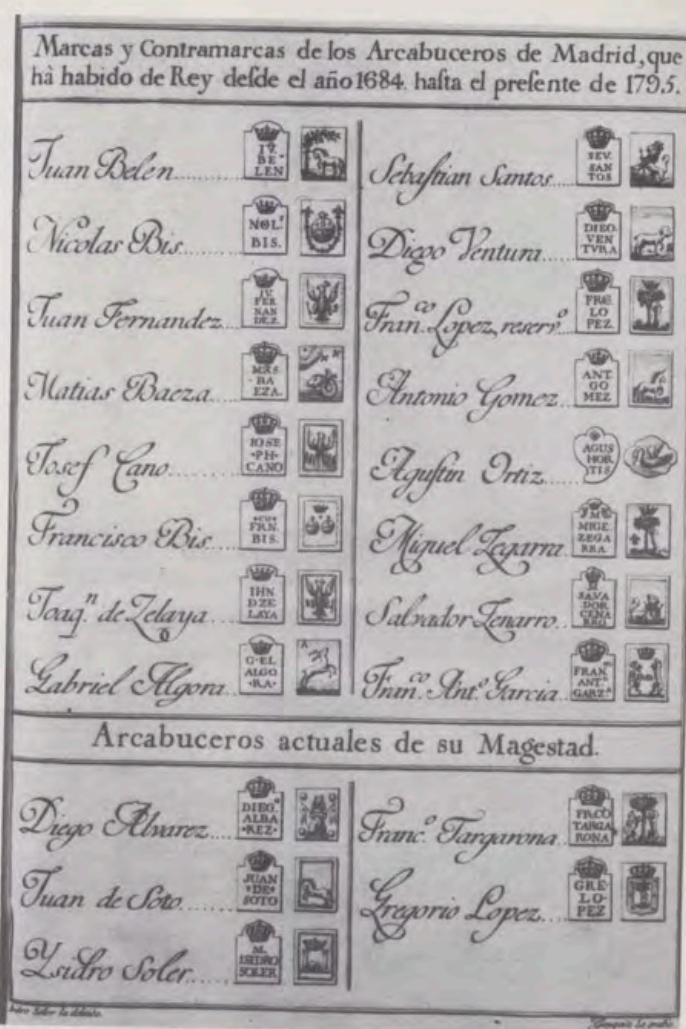 Marcas y Contramarcas de los Arcabuceros de Madrid, que
hà habido de Rey deſde el año 1684. haſta el preſente de 1795.
Juan Belen
IV.
BE
LEN
Nicolas Bis
NOL.
BIS.
Juan Fernandez
IV.
FER
NAN
DEZ.
Matias Baeza
MAS
BA
EZA.
Josef Cano
IO SE
·PH·
CANO
Francisco Bis
FRN.
BIS.
Joaq.n de Zelaya
IHN
DZE
LAYA
Gabriel Algora
G·EL
ALGO
·RA·
Sebaſtian Santos
SEV.
SAN
TOS
Diego Ventura
DIEO.
VEN
TVRA
Fran.co Lopez, reserv.o
FRE.
LO
PEZ.
Antonio Gomez
ANT.
GO
MEZ
Aguſtin Ortiz
AGUS
HOR
TIS
Miguel Zegarra
MIGE
ZEGA
RRA
Salvador Zenarro
SAVA
DOR
CENA
RRO
Fran.co Ant.o Garcia
FRAN
ANT
GARZ.A
Arcabuceros actuales de su Magestad.
Diego Alvarez
DIEG.O
ALBA
·REZ·
Juan de Soto
JUAN
·DE·
SOTO
Ysidro Soler
M.
ISIDRO
SOLER
Franc.o Targarona
FRCO
TARGA
RONA
Gregorio Lopez
GRE
LO-
PEZ